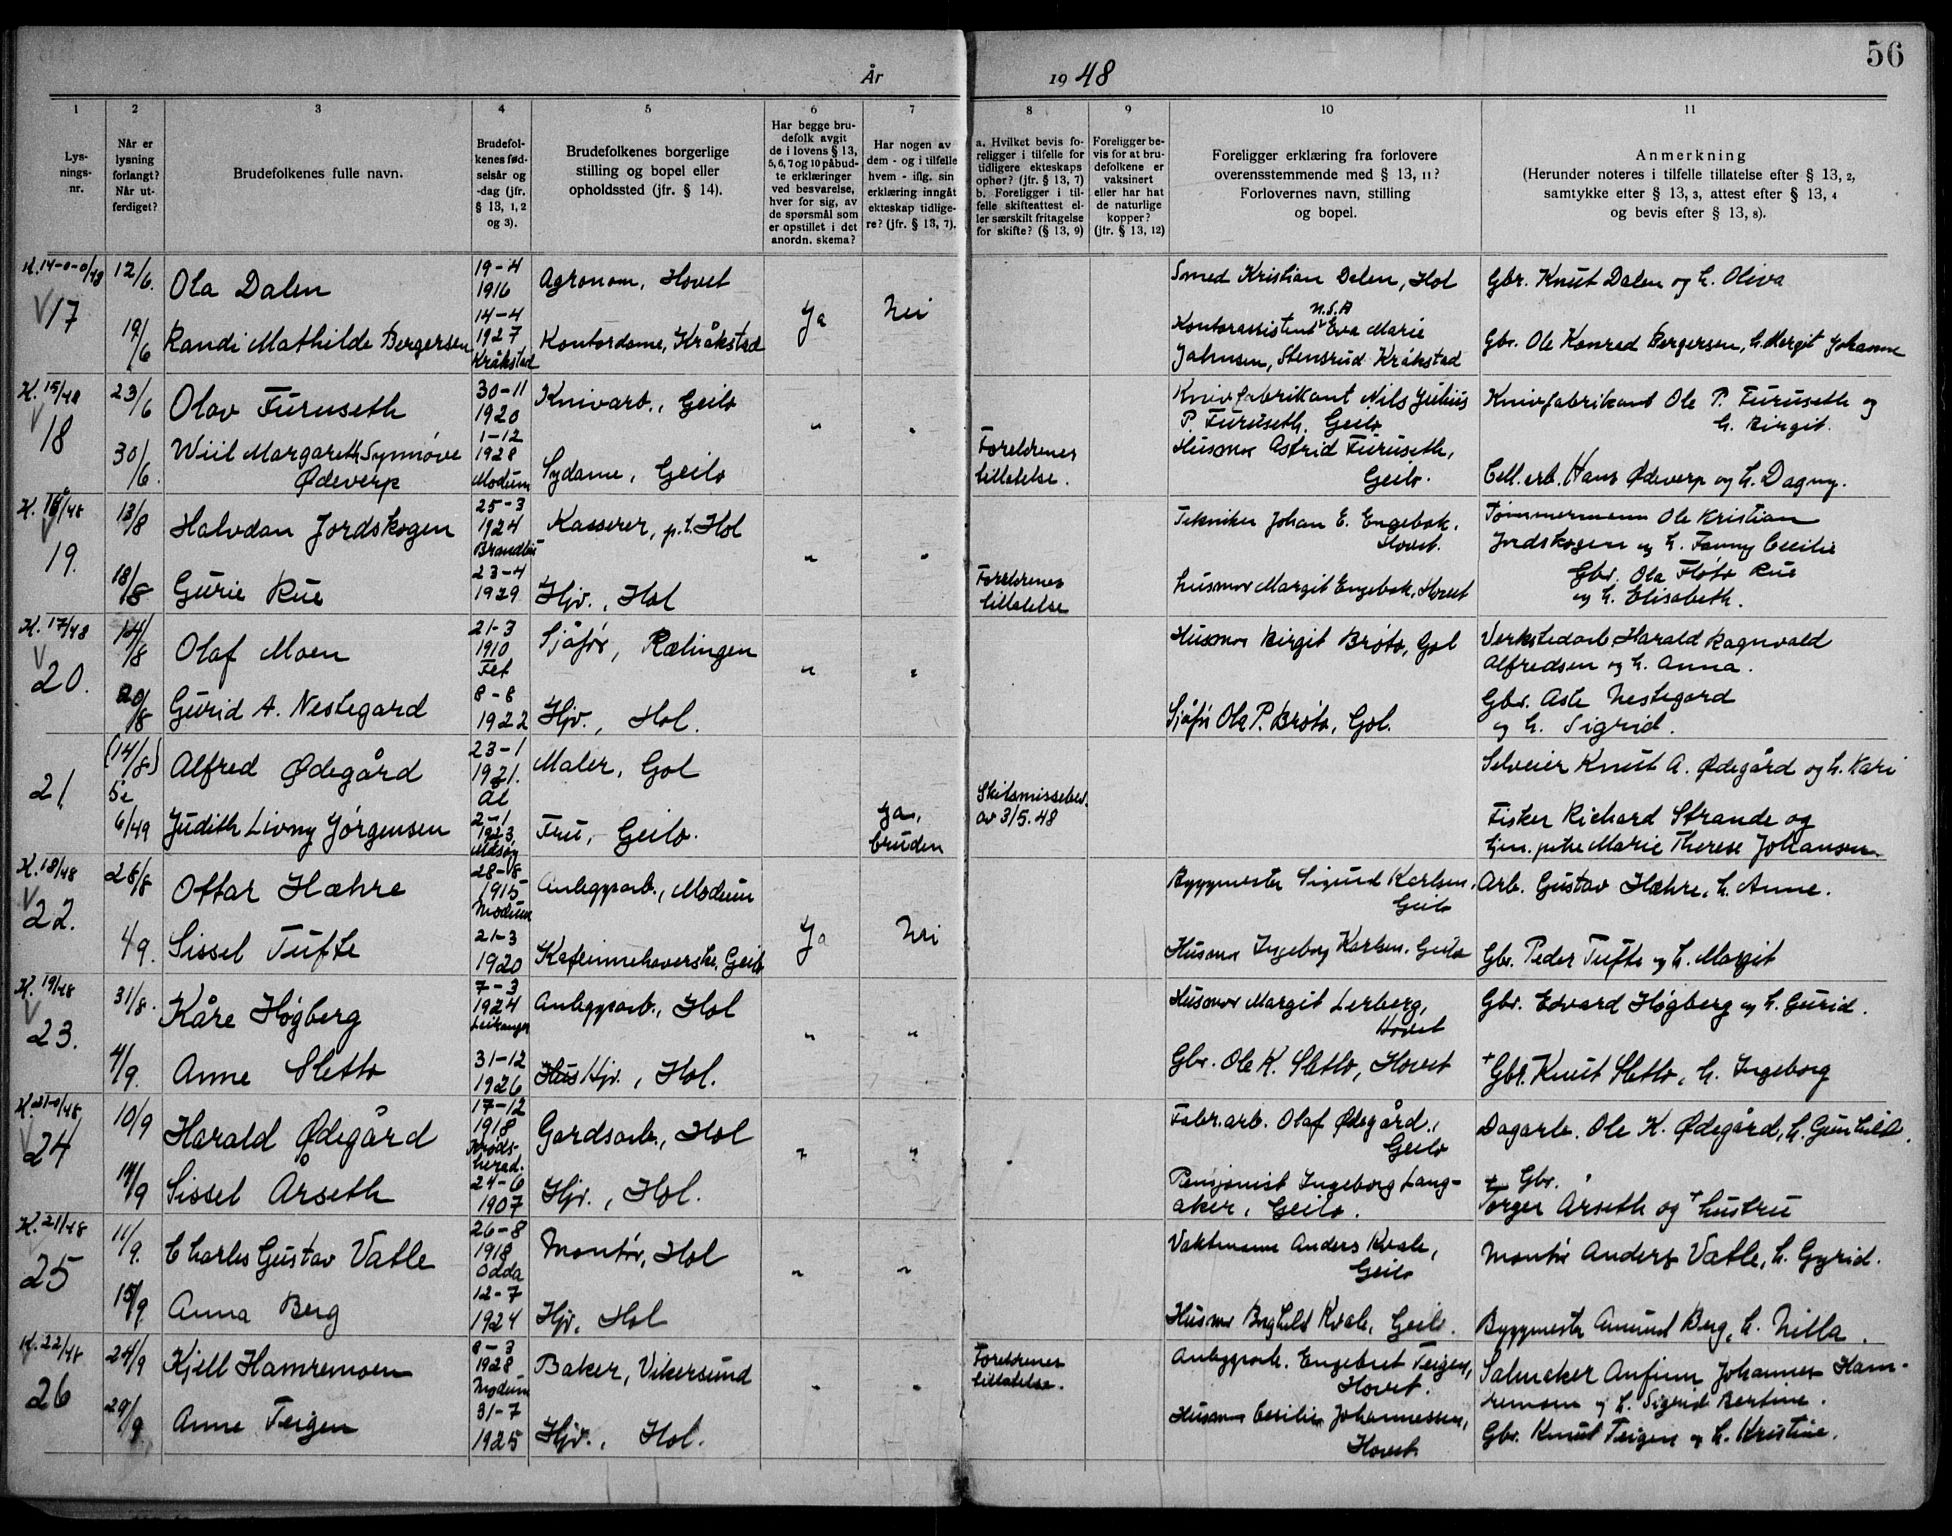 56
År 1948
1 2 3 4 5 6 7 8 9 10 11
Lys-
nings-
nr.
Når er
lysning
forlangt?
Når ut-
ferdiget?
Brudefolkenes fulle navn.
Brudefol-
kenes fød-
selsår og
-dag (jfr.
§ 13, 1, 2
og 3).
Brudefolkenes borgerlige
stilling og bopel eller
opholdssted (jfr. § 14).
Har begge bru-
defolk avgit
de i lovens § 13,
5, 6, 7 og 10 påbud-
te erklæringer
ved besvarelse,
hver for sig, av
de spørsmål som
er opstillet i det
anordn. skema?
Har nogen av
dem - og i tilfelle
hvem - iflg. sin
erklæring inngåt
ekteskap tidlige-
re? (jfr. § 13, 7).
a. Hvilket bevis fo-
religger i tilfelle for
tidligere ekteskaps
ophør? (jfr. § 13, 7)
b. Foreligger i til-
felle skifteattest el-
ler særskilt fritagelse
for skifte? (§ 13, 9)
Foreligger be-
vis for at bru-
defolkene er
vaksinert
eller har hat
de naturlige
kopper?
(jfr. § 13, 12)
Foreligger erklæring fra forlovere
overensstemmende med § 13, 11?
Forlovernes navn, stilling
og bopel.
Anmerkning
(Herunder noteres i tilfelle tillatelse efter § 13, 2,
samtykke efter § 13, 3, attest efter § 13, 4
og bevis efter § 13, 8).
17
12/6. Ola Dalen
19-4
1916
Agronom, Hovet
Smed Kristian Dalen, Hol
Gbr. Knut Dalen og h. Oliva
19/6 Randi Mathilde Bergersen
14-4
1927
Kråkstad
Kontordame, Kråkstad
Ja
Nei
Kontorassistent Eva Marie
Jahnsen, Stensrud Kråkstad
Gbr. Ole Konrad Bergersen, h. Margit Johanne
K. 15/48
18
23/6 Olav Furuseth
30-11
1920
Knivarb., Geilo
"
"
Knivfabrikant Nils Julius
P. Furuseth. Geilo
Knivfabrikant Ole P. Furuseth og
h. Birgit.
30/6. Wiil Margareth Synnøve
Ødeverp
1-12
1928
Modum
Sydame, Geilo
Foreldrenes
tillatelse.
Husmor Astrid Furuseth,
Geilo.
Cell.arb. Hans Ødeverp og h. Dagny.
19.
13/8 Halvdan Jordskogen
25-3
1924
Kasserer, p.t. Hol
"
"
Tekniker Johan E. Engebak,
Hovet.
Tømmermann Ole Kristian
Jordskogen og h. Fanny Cecilie
18/8 Gurie Rue
23-4
1929
Hjv., Hol
Foreldrenes
tillatelse
husmor Margit Engebak, Hovet
Gbr. Ola Fløto Rue
og h. Elisabeth.
K. 17/48
20.
14/8 Olaf Moen
21-3
1910
Fet
Sjåfør, Rælingen
"
"
Husmor Birgit Brøto, Gol
Verkstedarb. Harald Ragnvald
Alfredsen og h. Anna.
20/8 Gurid A. Nestegard
8-8
1922
Hjv., Hol.
Sjåfør Ola P. Brøto, Gol.
Gbr. Asle Nestegard
og h. Sigrid.
21
(14/8) Alfred Ødegård
23-1
1921.
Ål
Maler, Gol
Selveier Knut A. Ødegård og h. Kari
6/49 Judith Livny Jørgensen
2-1
1923,
Måsøy
Fru, Geilo.
Ja,
bruden
Skilsmissebev.
av 3/5.48
Fisker Richard Strande og
tjen. pike Marie Therese Johansen
K. 18/48
22.
28/8 Ottar Hæhre
28-8
1915
Modum
Anleggsarb., Modum
Byggmester Sigurd Karlsen,
Geilo
Arb. Gustav Hæhre, h. Anne.
4/9. Sissel Tufte
21-3
1920
Kafeinnehaverske, Geilo
Ja
Nei
Husmor Ingeborg Karlsen, Geilo
Gbr. Peder Tufte og h. Margit
K. 19/48
23.
31/8. Kåre Høgberg
7-3
1924
Leikanger
Anleggsarb., Hol
"
"
Husmor Margit Lerberg,
Hovet
Gbr. Edvard Høgberg og h. Gurid.
4/9. Anne Sletto
31-12
1926
Hjv., Hol.
Gbr. Ole K. Sletto, Hovet
+Gbr. Knut Sletto, h. Ingeborg
24
10/9 Harald Ødegård
17-12
1918
Krøds-
herad.
Gardsarb., Hol
"
"
Fabr.arb. Olaf Ødegård,
Geilo
Dagarb. Ole K. Ødegård, h. Gunhild.
14/9 Sissel Årseth
24-6
1907
Hjv., Hol.
Pensjonist Ingeborg Lang-
aker, Geilo.
+ Gbr.
Torger Årseth og + hustru
K. 21/48
25
11/9. Charles Gustav Vatle
26-8
1918
Odda
Montør, Hol
"
"
Vaktmann Anders Kvale,
Geilo
Montør Anders Vatle, h. Gyrid.
15/9 Anna Berg
12-7
1924
Hjv., Hol
Husmor Borghild Kvale, Geilo.
Byggmester Amund Berg, h. Nilla.
K. 22/48
26
24/9 Kjell Hamremoen
8-3
1928
Modum
Baker, Vikersund
"
"
Foreldrenes
tillatelse.
Anleggsarb. Engebret Teigen,
Hovet.
Salmaker Anfinn Johannes Ham-
remoen og h. Sigrid Bertine.
29/9 Anne Teigen
31-7
1925
Hjv., Hol.
Husmor Cecilie Johannessen,
Hovet
Gbr. Knut Teigen og h. Kristine.